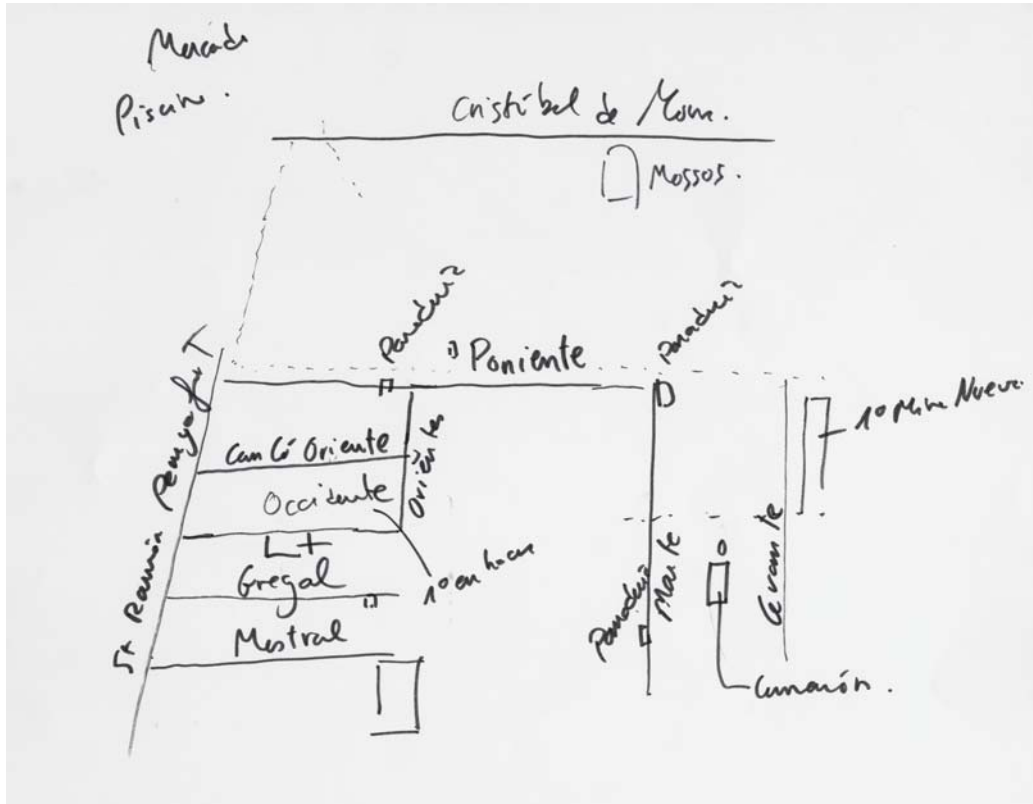 Mercado
Piscina.
Cristóbal de Moura.
Mossos.
Panadería
Poniente
Panadería
St Ramón Penyafort
1º Mina Nueva
Oriente
Orientes
Occidente
L+
Gregal
1º en hacer
Mestral
Panadería
Marte
Levante